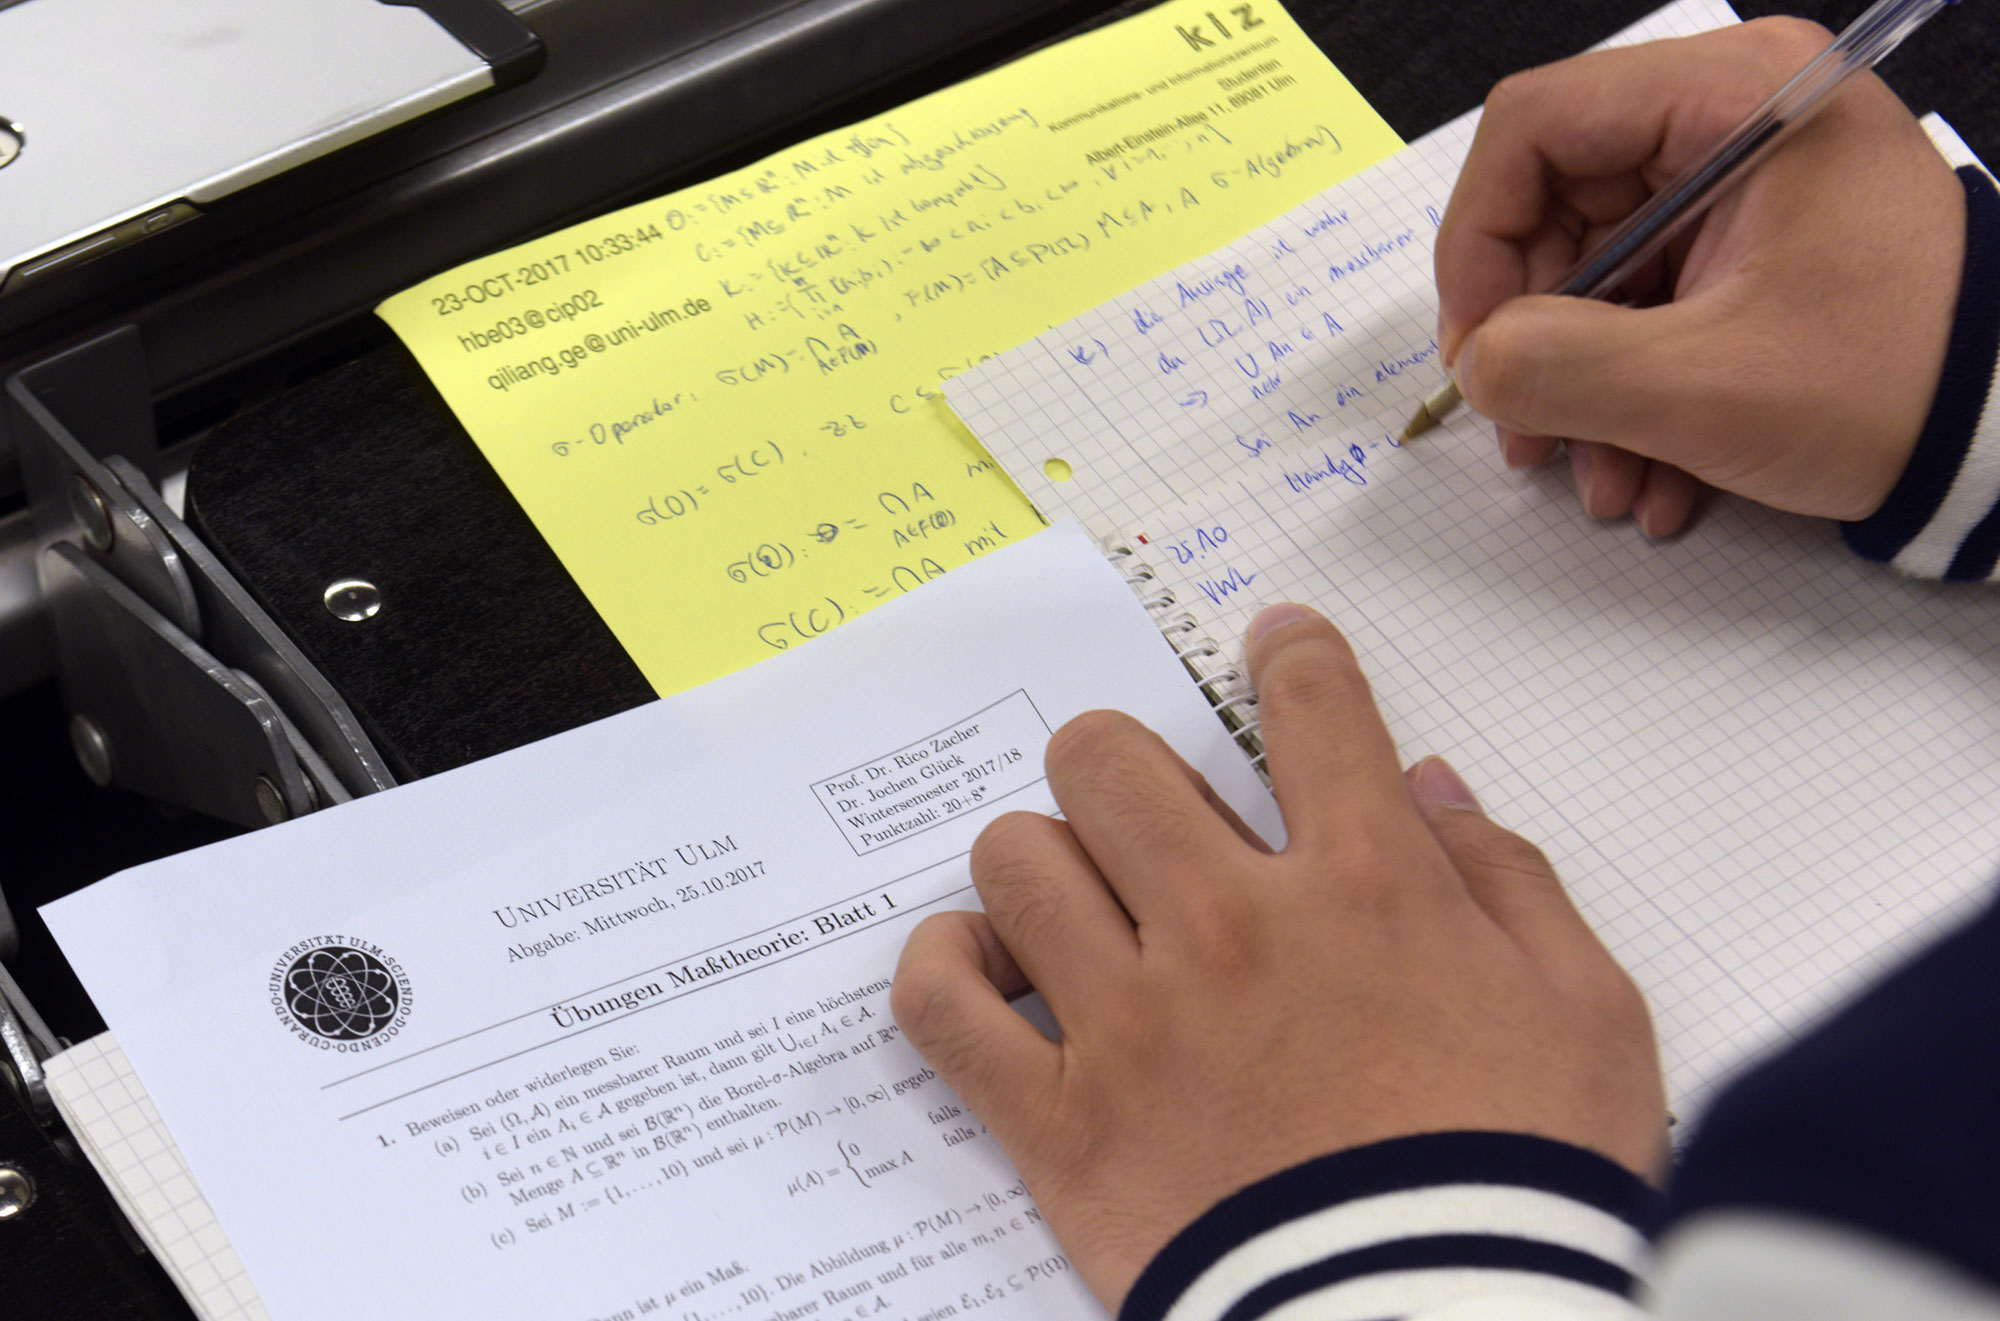 kız
Kommunikations- und Informationszentrum
Studenten
Albert-Einstein-Allee 11, 89081 Ulm
23-OCT-2017 10:33:44
hbe03@cip02
qiliang.ge@uni-ulm.de
O:={M⊆ℝⁿ: M ist offen}
C:={M⊆ℝⁿ: M ist abgeschlossen}
K:={K⊆ℝⁿ: K ist kompakt}
F(M)={A⊆P(Ω) M⊆A, A σ-Algebra}
σ-Operator: σ(M)=⋂A
A∈F(M)
σ(O)=σ(C). z.b C⊆
σ(O): = ⋂A
A∈F(O)
σ(C): =⋂A mit
die Aussage ist wahr
da (Ω, A) ein messbarer
⇒ ⋃ An ∈ A
n∈ℕ
Sei An ein element
25.10
VWL
Prof. Dr. Rico Zacher
Dr. Jochen Glück
Wintersemester 2017/18
Punktzahl: 20+8*
UNIVERSITÄT ULM
Abgabe: Mittwoch, 25.10.2017
UNIVERSITÄT ULM·SCIENDO·DOCENDO·CURANDO·
Übungen Maßtheorie: Blatt 1
1. Beweisen oder widerlegen Sie:
(a) Sei (Ω, 𝒜) ein messbarer Raum und sei I eine höchstens
i ∈ I ein Aᵢ ∈ 𝒜 gegeben ist, dann gilt ⋃ᵢ∈I Aᵢ ∈ 𝒜.
(b) Sei n ∈ ℕ und sei ℬ(ℝⁿ) die Borel-σ-Algebra auf ℝⁿ
Menge A ⊆ ℝⁿ in ℬ(ℝⁿ) enthalten.
(c) Sei M := {1, …, 10} und sei μ : 𝒫(M) → [0, ∞]
μ(A) = {0 falls
max A falls
ist μ ein Maß.
{1, …, 10}. Die Abbildung μ : 𝒫(M) → [0, ∞]
Raum und für alle m, n ∈ ℕ
∈ 𝒜.
seien ℰ₁, ℰ₂ ⊆ 𝒫(Ω)